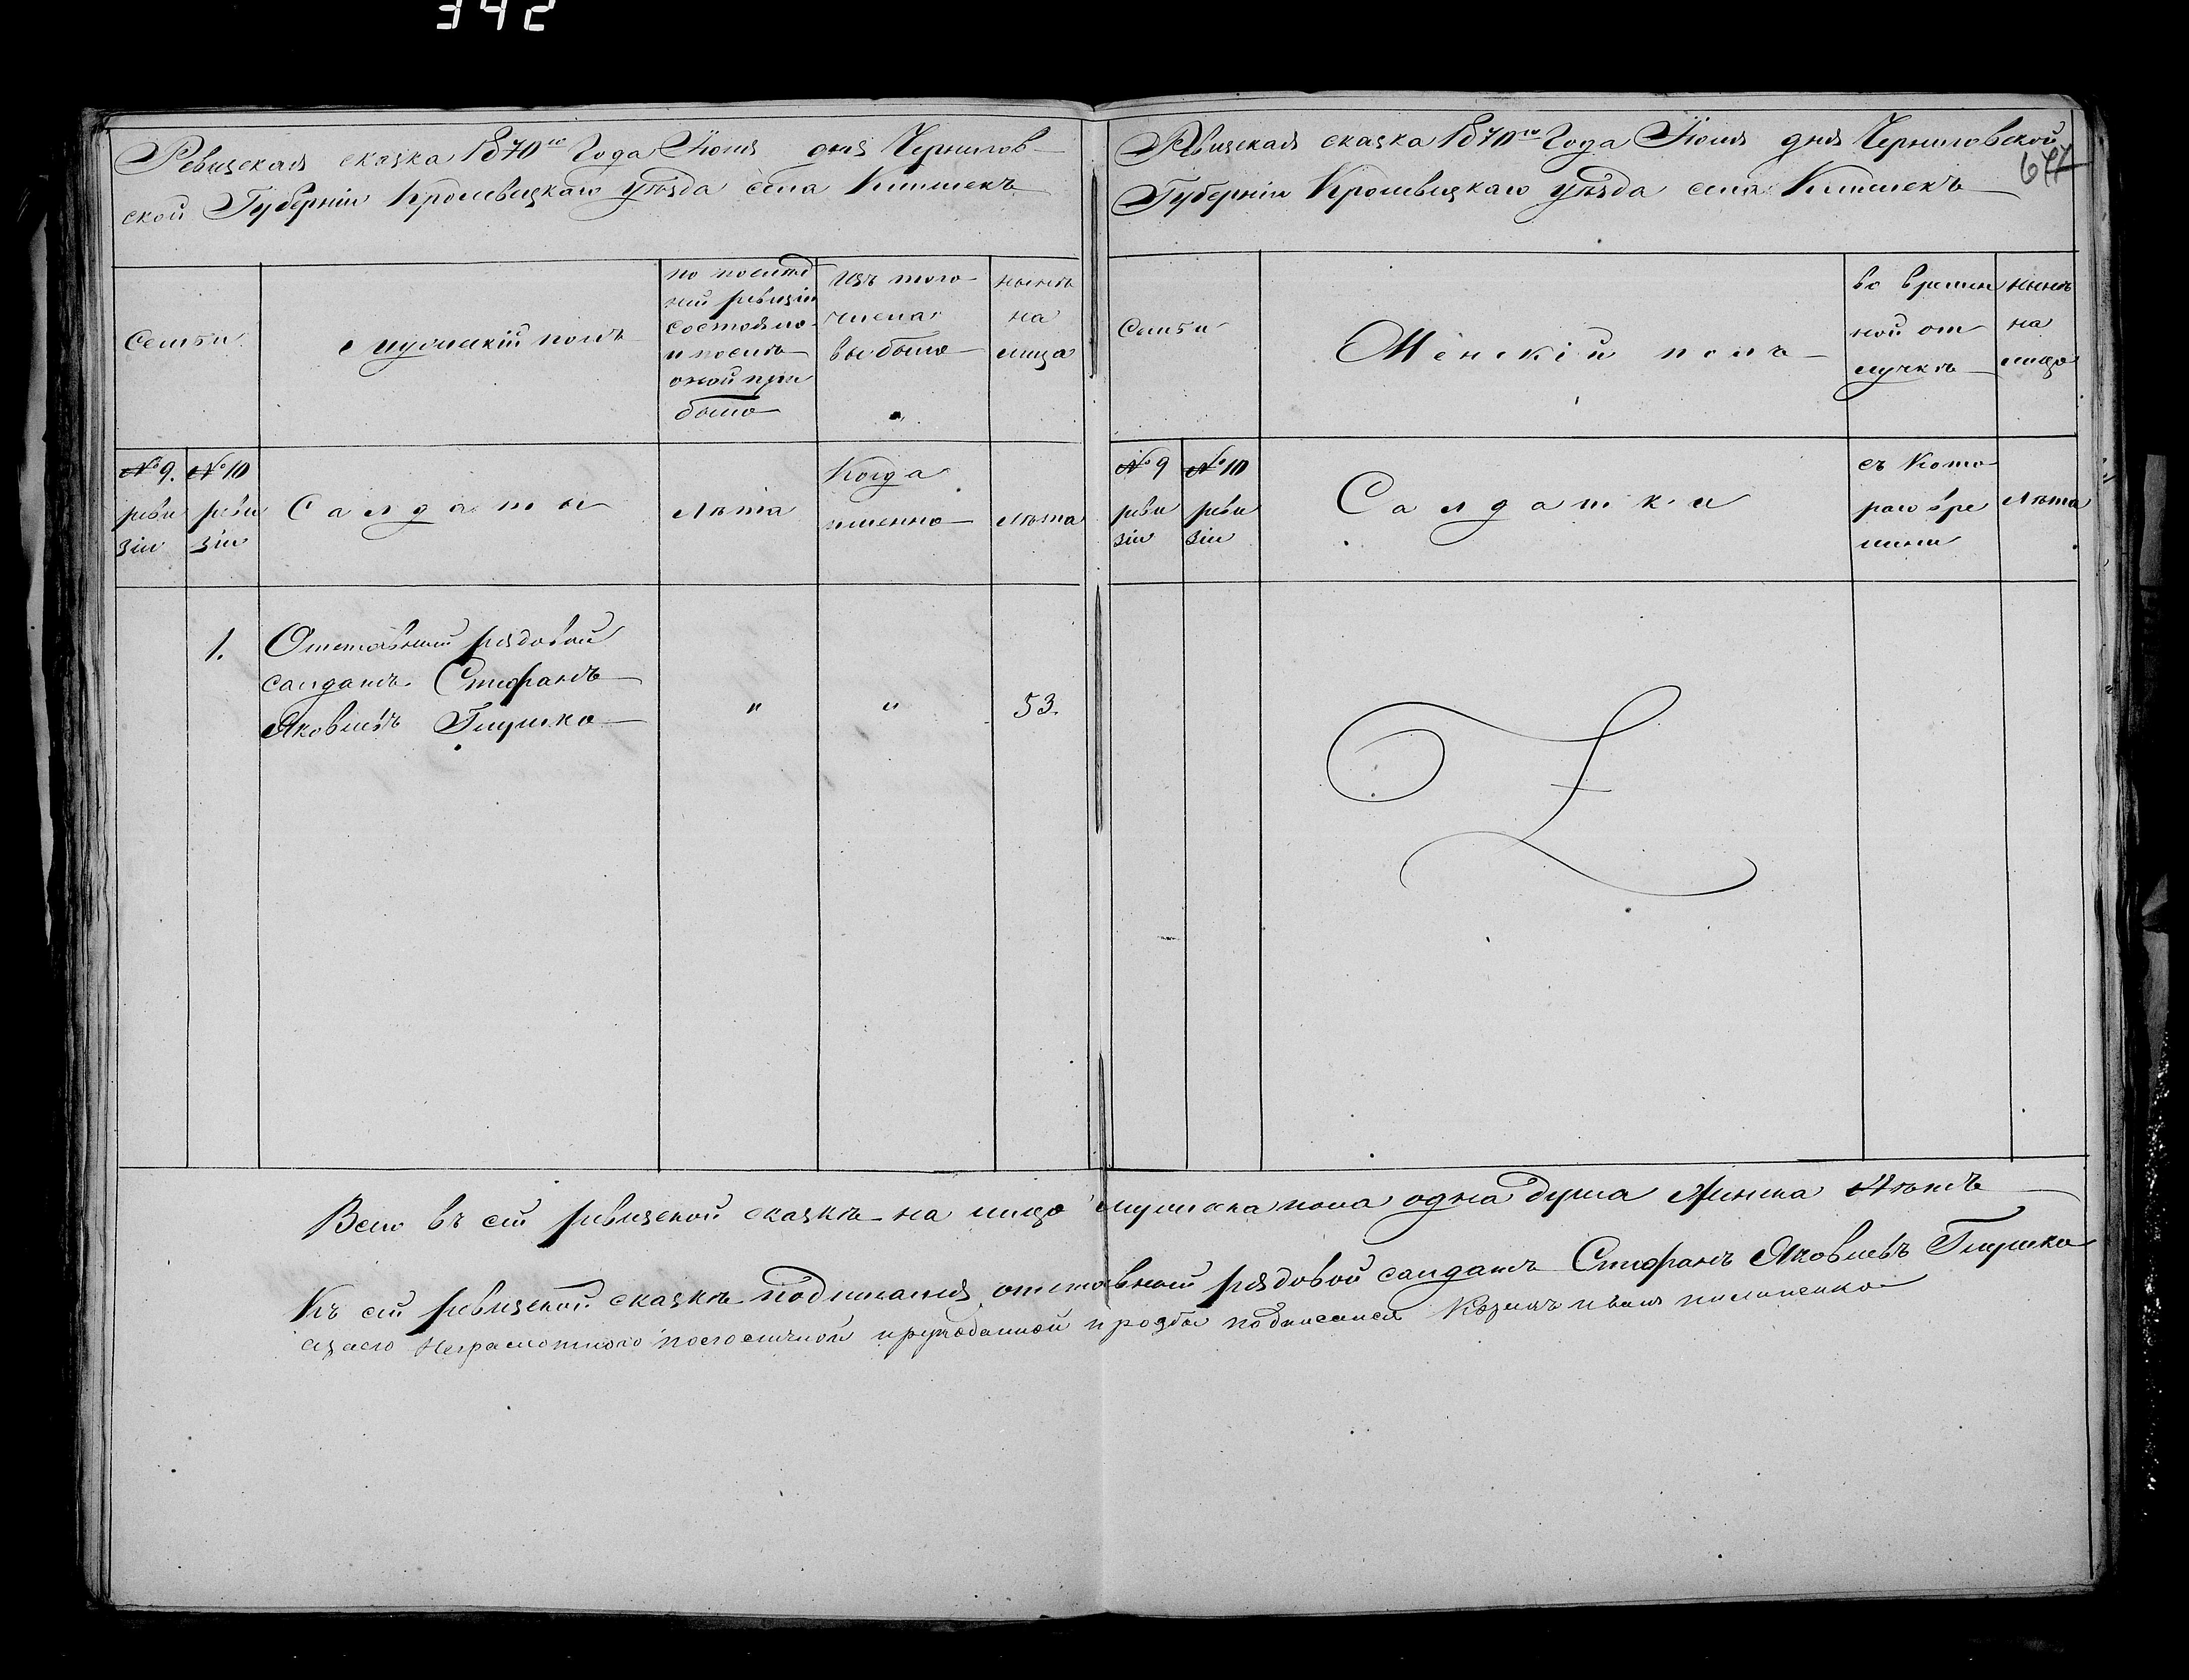 342
Ревизская сказка 1870го Года Июня дня Чернигов-
ской Губернии Кролевецкаго Уѣзда села
Семьи
Мужескій полъ
по послѣд
ней ревизіи
состояло
и послѣ
оной при
было
Изъ того
числа
выбыло
нынѣ
на
лицо
№ 9.
реви
зіи
№ 10
реви
зіи
Салдаты
Лѣта
Когда
именно
Лѣта
1.
Отставный рядовой
салдатъ Стефанъ
Яковлевъ Глушко
"
"
53.
Ревизская сказка 1870го Года Июня дня Черниговской
Губерніи Кролевецкаго Уѣзда села
Семьи
Женскій полъ
во времен
ной от
лучкѣ
нынѣ
на
лицо
№ 9
реви
зіи
№ 10
реви
зіи
Салдатки
съ кото
раго вре
мени
Лѣта
Всего въ сей ревизской сказкѣ на лицо мужеска пола одна душа женска нѣтъ
Къ сей ревизской сказкѣ отставный рядовой салдатъ Стефанъ Яковлевъ Глушко
неграмотного прозбы подписался